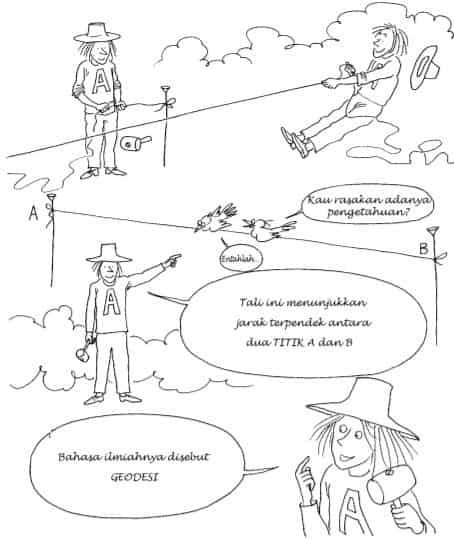 A
Kau rasakan adanya
pengetahuan?
A
B
Entahlah...
A
Tali ini menunjukkan
jarak terpendek antara
dua TITIK A dan B
Bahasa ilmiahnya disebut
GEODESI
A